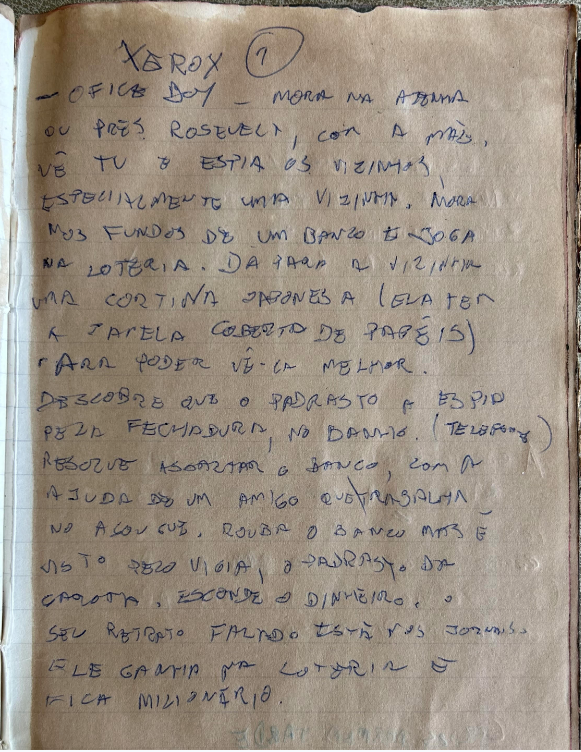 XEROX 1
- OFICE BOY - MORA NA AZENHA
OU PRÊS ROSEVELT, COM A MÃE.
VÊ TV E ESPIA OS VIZINHOS,
ESPECIALMENTE UMA VIZINHA. MORA
NOS FUNDOS DE UM BANCO E JOGA
NA LOTERIA. DÁ PARA A VIZINHA
UMA CORTINA JAPONESA (ELA TEM
A JANELA COBERTA DE PAPÉIS)
PARA PODER VÊ-LA MELHOR.
DESCOBRE QUE O PADRASTO A ESPIA
PELA FECHADURA, NO BANHO. (TELEFONE)
RESOLVE ASSALTAR O BANCO, COM A
AJUDA DE UM AMIGO QUE TRABALHA
NO AÇOUGUE. ROUBA O BANCO MAS É
VISTO PELO VIGIA, O PADRASTO DA
GAROTA. ESCONDE O DINHEIRO. O
SEU RETRATO FALADO ESTÁ NOS JORNAIS.
ELE GANHA NA LOTERIA E
FICA MILIONÁRIO.